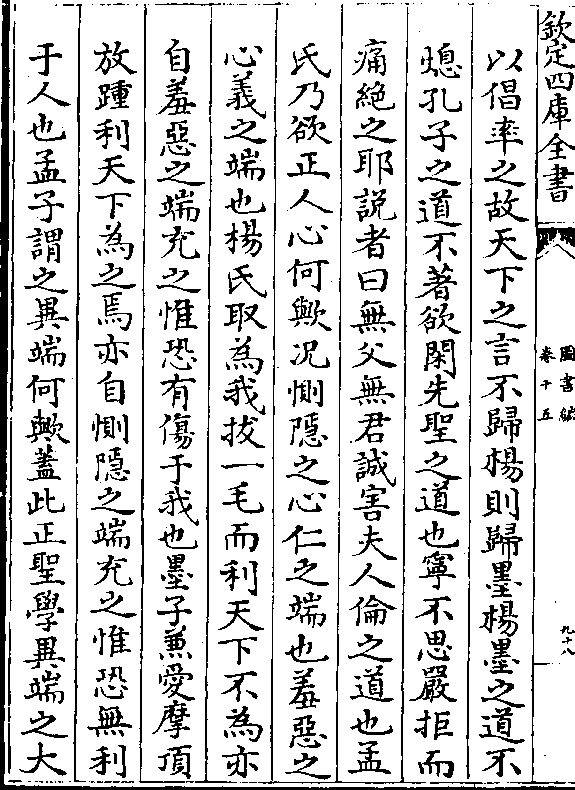 欽定四庫全書
圖書編
卷十五
九十八
以倡率之故天下之言不歸楊則歸墨楊墨之道不
熄孔子之道不著欲閑先聖之道也寧不思嚴拒而
痛絶之耶説者曰無父無君誠害夫人倫之道也孟
氏乃欲正人心何歟況惻隱之心仁之端也羞惡之
心義之端也楊氏取為我拔一毛而利天下不為亦
自羞惡之端充之惟恐有傷于我也墨子兼愛摩頂
放踵利天下為之焉亦自惻隱之端充之惟恐無利
于人也孟子謂之異端何歟蓋此正聖學異端之大